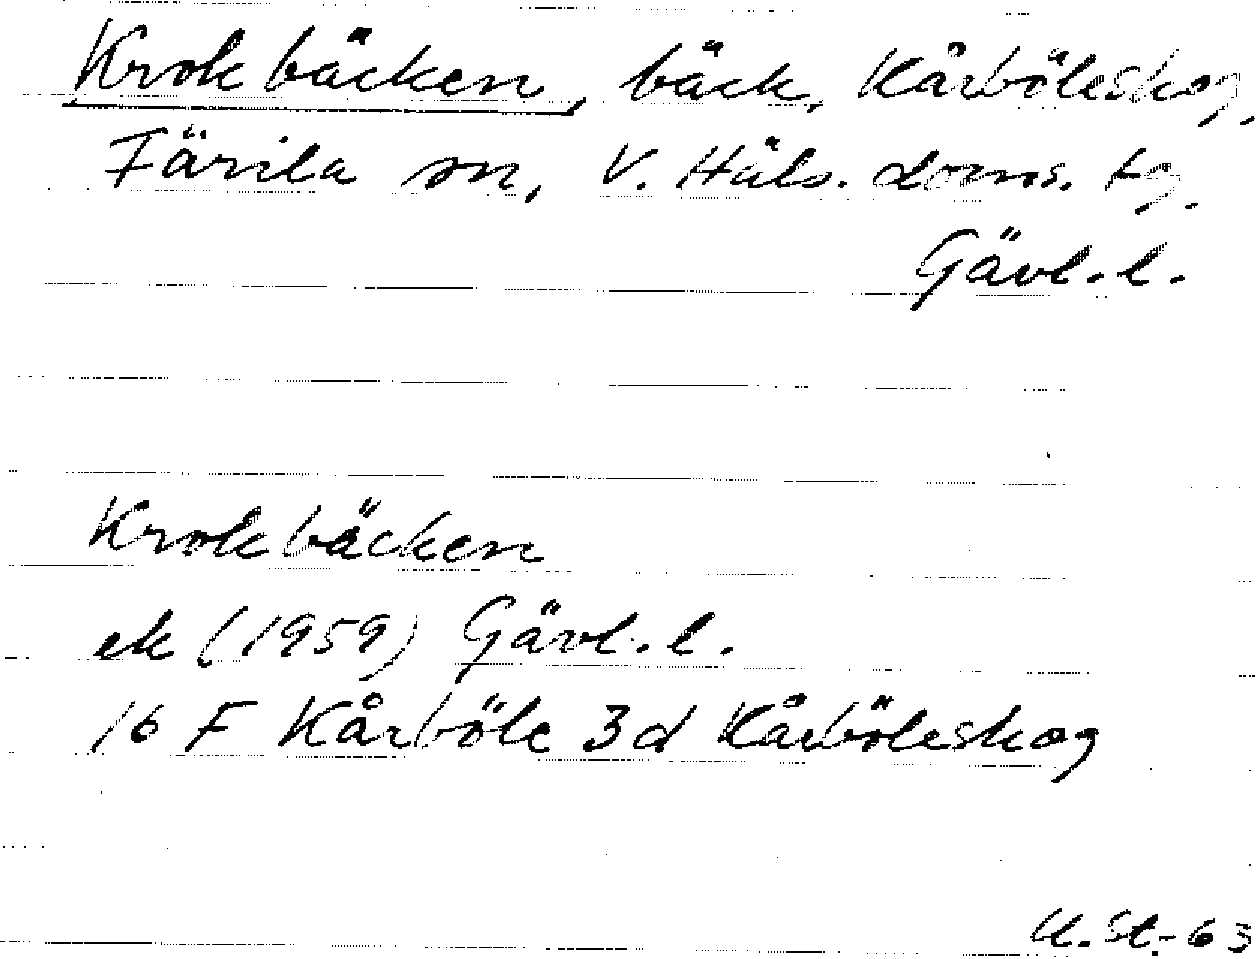 Krokbäcken, bäck, Kårböleskog,
Färila sn, V. Häls. doms. tg,
Gävl. l.
Krokbäcken
ek (1959) Gävl. l.
16 F Kårböle 3d Kårböleskog
U. St. - 63